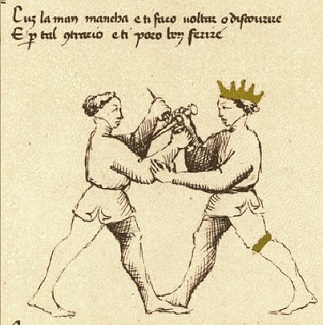 Cuӡ la man mancha e ti faro voltar o discovrire
E ꝑ tal ꝯtrario e ti poro ben ferire